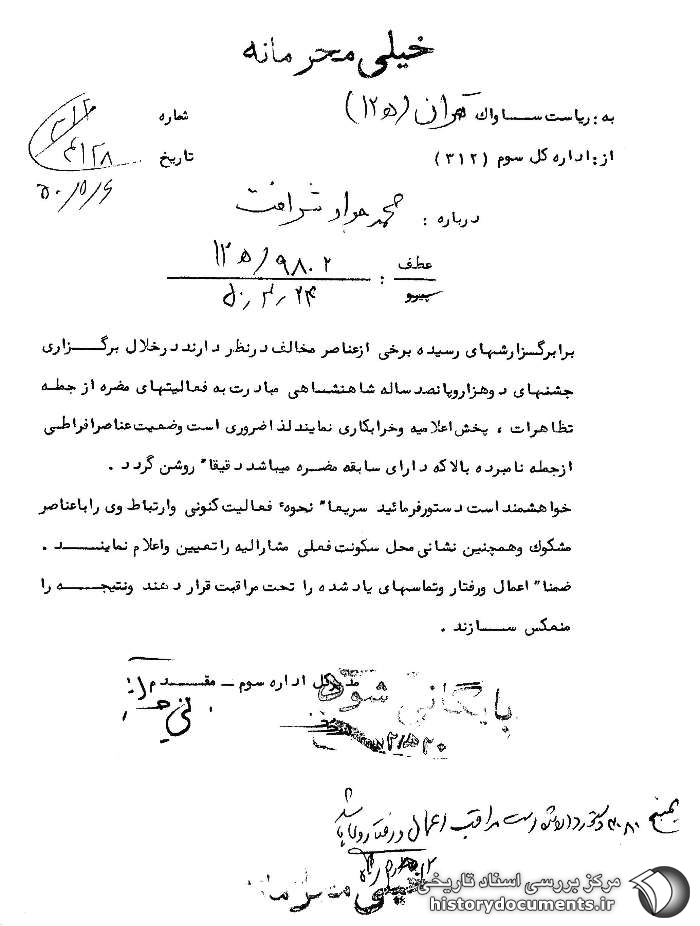 خیلی محرمانه
به: ریاست ساواك تهران (۱۲ﻫ)
شماره
از: اداره کل سوم (۳۱۲)
تاریخ ۴۱۲۸
۵۰/۵/۶
درباره: محمد جواد شرافت
عطف : ۹۸۰۲/۱۲ﻫ
پیرو ۵۰٫۳٫۲۴
برابرگزارشهای رسیده برخی ازعناصر مخالف درنظر دارند درخلال برگزاری
جشنهای دوهزاروپانصد ساله شاهنشاهی مبادرت به فعالیتهای مضره از جمله
تظاهرات ، پخش اعلامیه وخرابکاری نمایند لذا ضروری است وضعیت عناصر افراطی
ازجمله نامبرده بالا که دارای سابقه مضره میباشد دقیقا" روشن گردد .
خواهشمند است دستورفرمائید سریعا" نحوه ٔ فعالیت کنونی وارتباط وی را باعناصر
مشکوك وهمچنین نشانی محل سکونت فعلی مشارالیه را تعیین واعلام نمایند .
ضمنا" اعمال ورفتار وتماسهای یاد شده را تحت مراقبت قرار دهند ونتیجه را
منعکس سازند .
مدیرکل اداره سوم ــ مقدم
بایگانی شود
مراقب اعمال و رفتار
خیلی محرمانه
مرکز بررسی اسناد تاریخی
historydocuments.ir